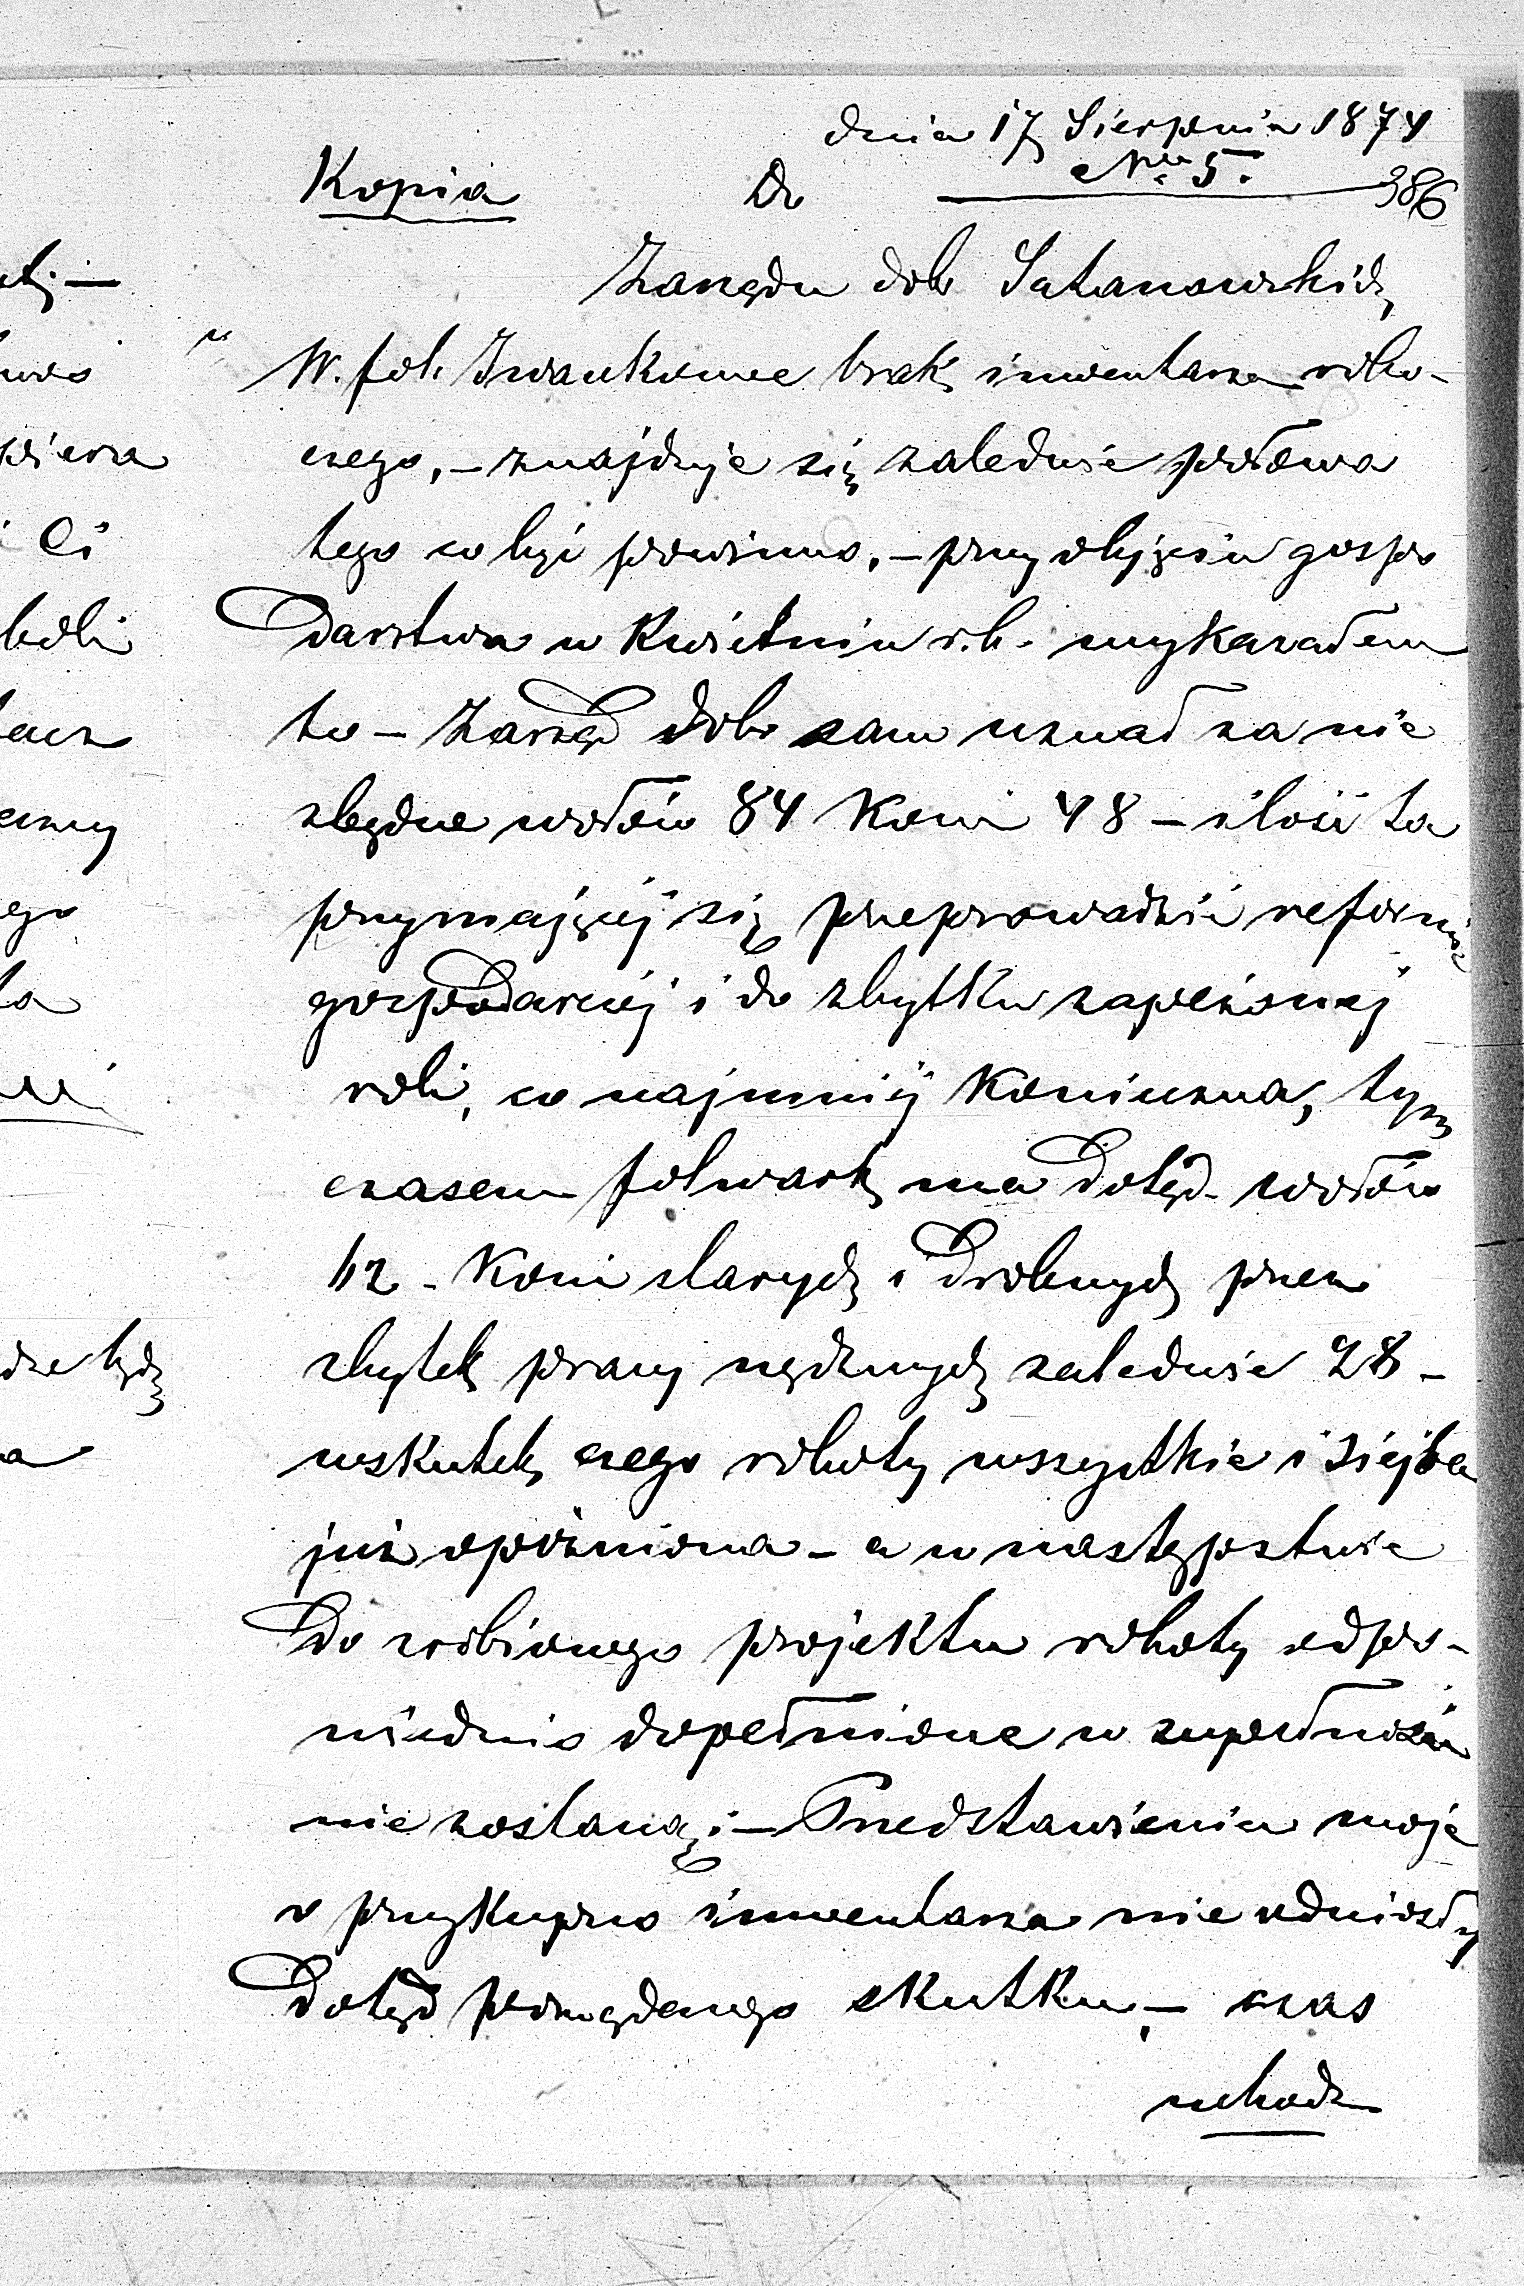 dnia 17 Sierpnia 1874
No 5.
386
Kopia Do
Zarządu dóbr Satanowskich
W. fol. Iwankowce brak inwentarza robo-
czego, – znajduje się zaledwie połowa
tego co być powinno, – przy objęciu gospo
darstwa w Kwietniu r.b. wykazałem
to – Zarząd dóbr sam uznał za nie
zbędne wołów 84 Koni 48 – ilość ta
przy mającej się przeprowadzić reformie
gospodarczej i do zbytku zapeżonej
roli, co najmniej Konieczna, tym
czasem folwark ma dotąd wołów
62 – Koni starych i drobnych przez
zbytek pracy nędznych zaledwie 28 –
wskutek czego roboty wszystkie i siejba
już opóźniona – a w następstwie
do zrobionego projektu roboty odpo-
wiednio dopełnione w zupełności
nie zostaną; – Przedstawienia moje
o przykupno inwentarza nie odniosły
dotąd pożądanego skutku, – czas
uchodz